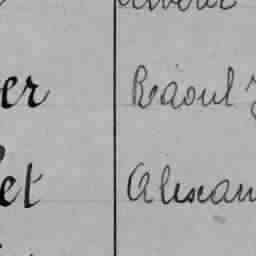 er Raoul
et Alexan